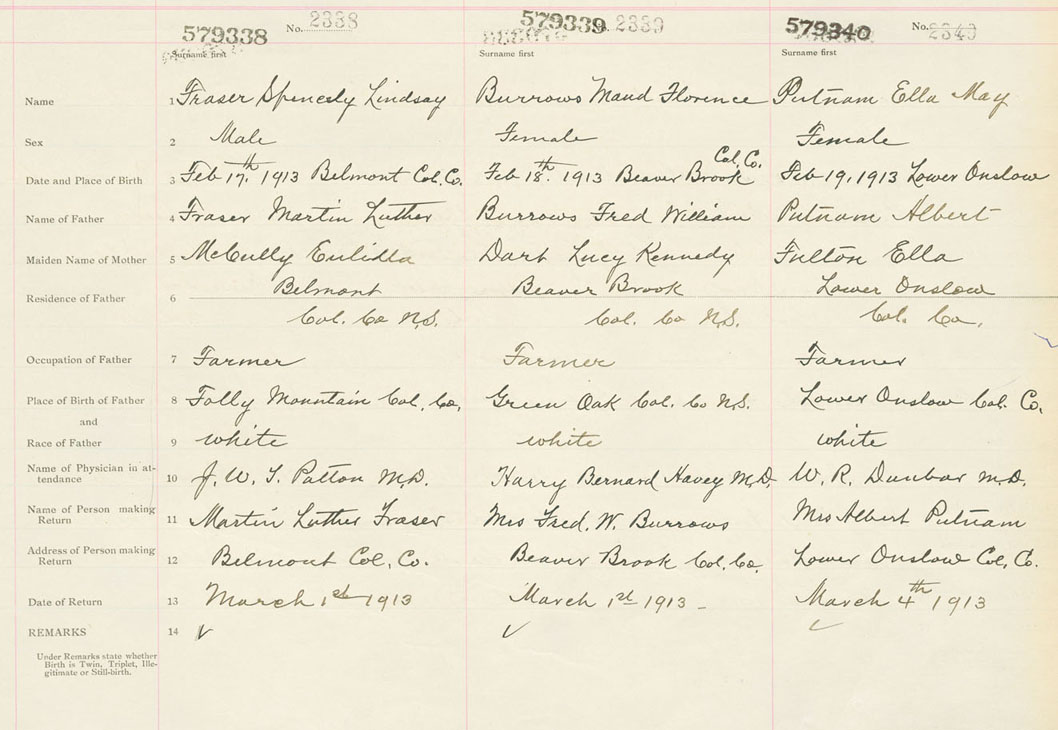 579338 No. 2338 579339 2339 579340 No. 2340
Surname first Surname first Surname first
Name 1 Fraser Spencely Lindsay Burrows Maud Florence Putnam Ella May
Sex 2 Male Female Female
Col. Co.
Date and Place of Birth 3 Feb 17th. 1913 Belmont Col. Co. Feb 18th. 1913 Beaver Brook Feb 19, 1913 Lower Onslow
Name of Father 4 Fraser Martin Luther Burrows Fred William Putnam Albert
Maiden Name of Mother 5 McCully Eulidla Dart Lucy Kennedy Fulton Ella
Residence of Father 6 Belmont Beaver Brook Lower Onslow
Col. Co N.S. Col. Co N.S. Col. Co.
Occupation of Father 7 Farmer Farmer Farmer
Place of Birth of Father 8 Folly Mountain Col. Co. Green Oak Col. Co N.S. Lower Onslow Col. Co.
and
Race of Father 9 white white white
Name of Physician in at-
tendance 10 J. W. T. Patton M.D. Harry Bernard Havey M.D. W. R. Dunbar M.D.
Name of Person making
Return 11 Martin Luther Fraser Mrs Fred. W. Burrows Mrs Albert Putnam
Address of Person making
Return 12 Belmont Col. Co. Beaver Brook Col. Co. Lower Onslow Col. Co.
Date of Return 13 March 1st 1913 March 1st 1913 - March 4th 1913
REMARKS 14 ✓ ✓ ✓
Under Remarks state whether
Birth is Twin, Triplet, Ille-
gitimate or Still-birth.